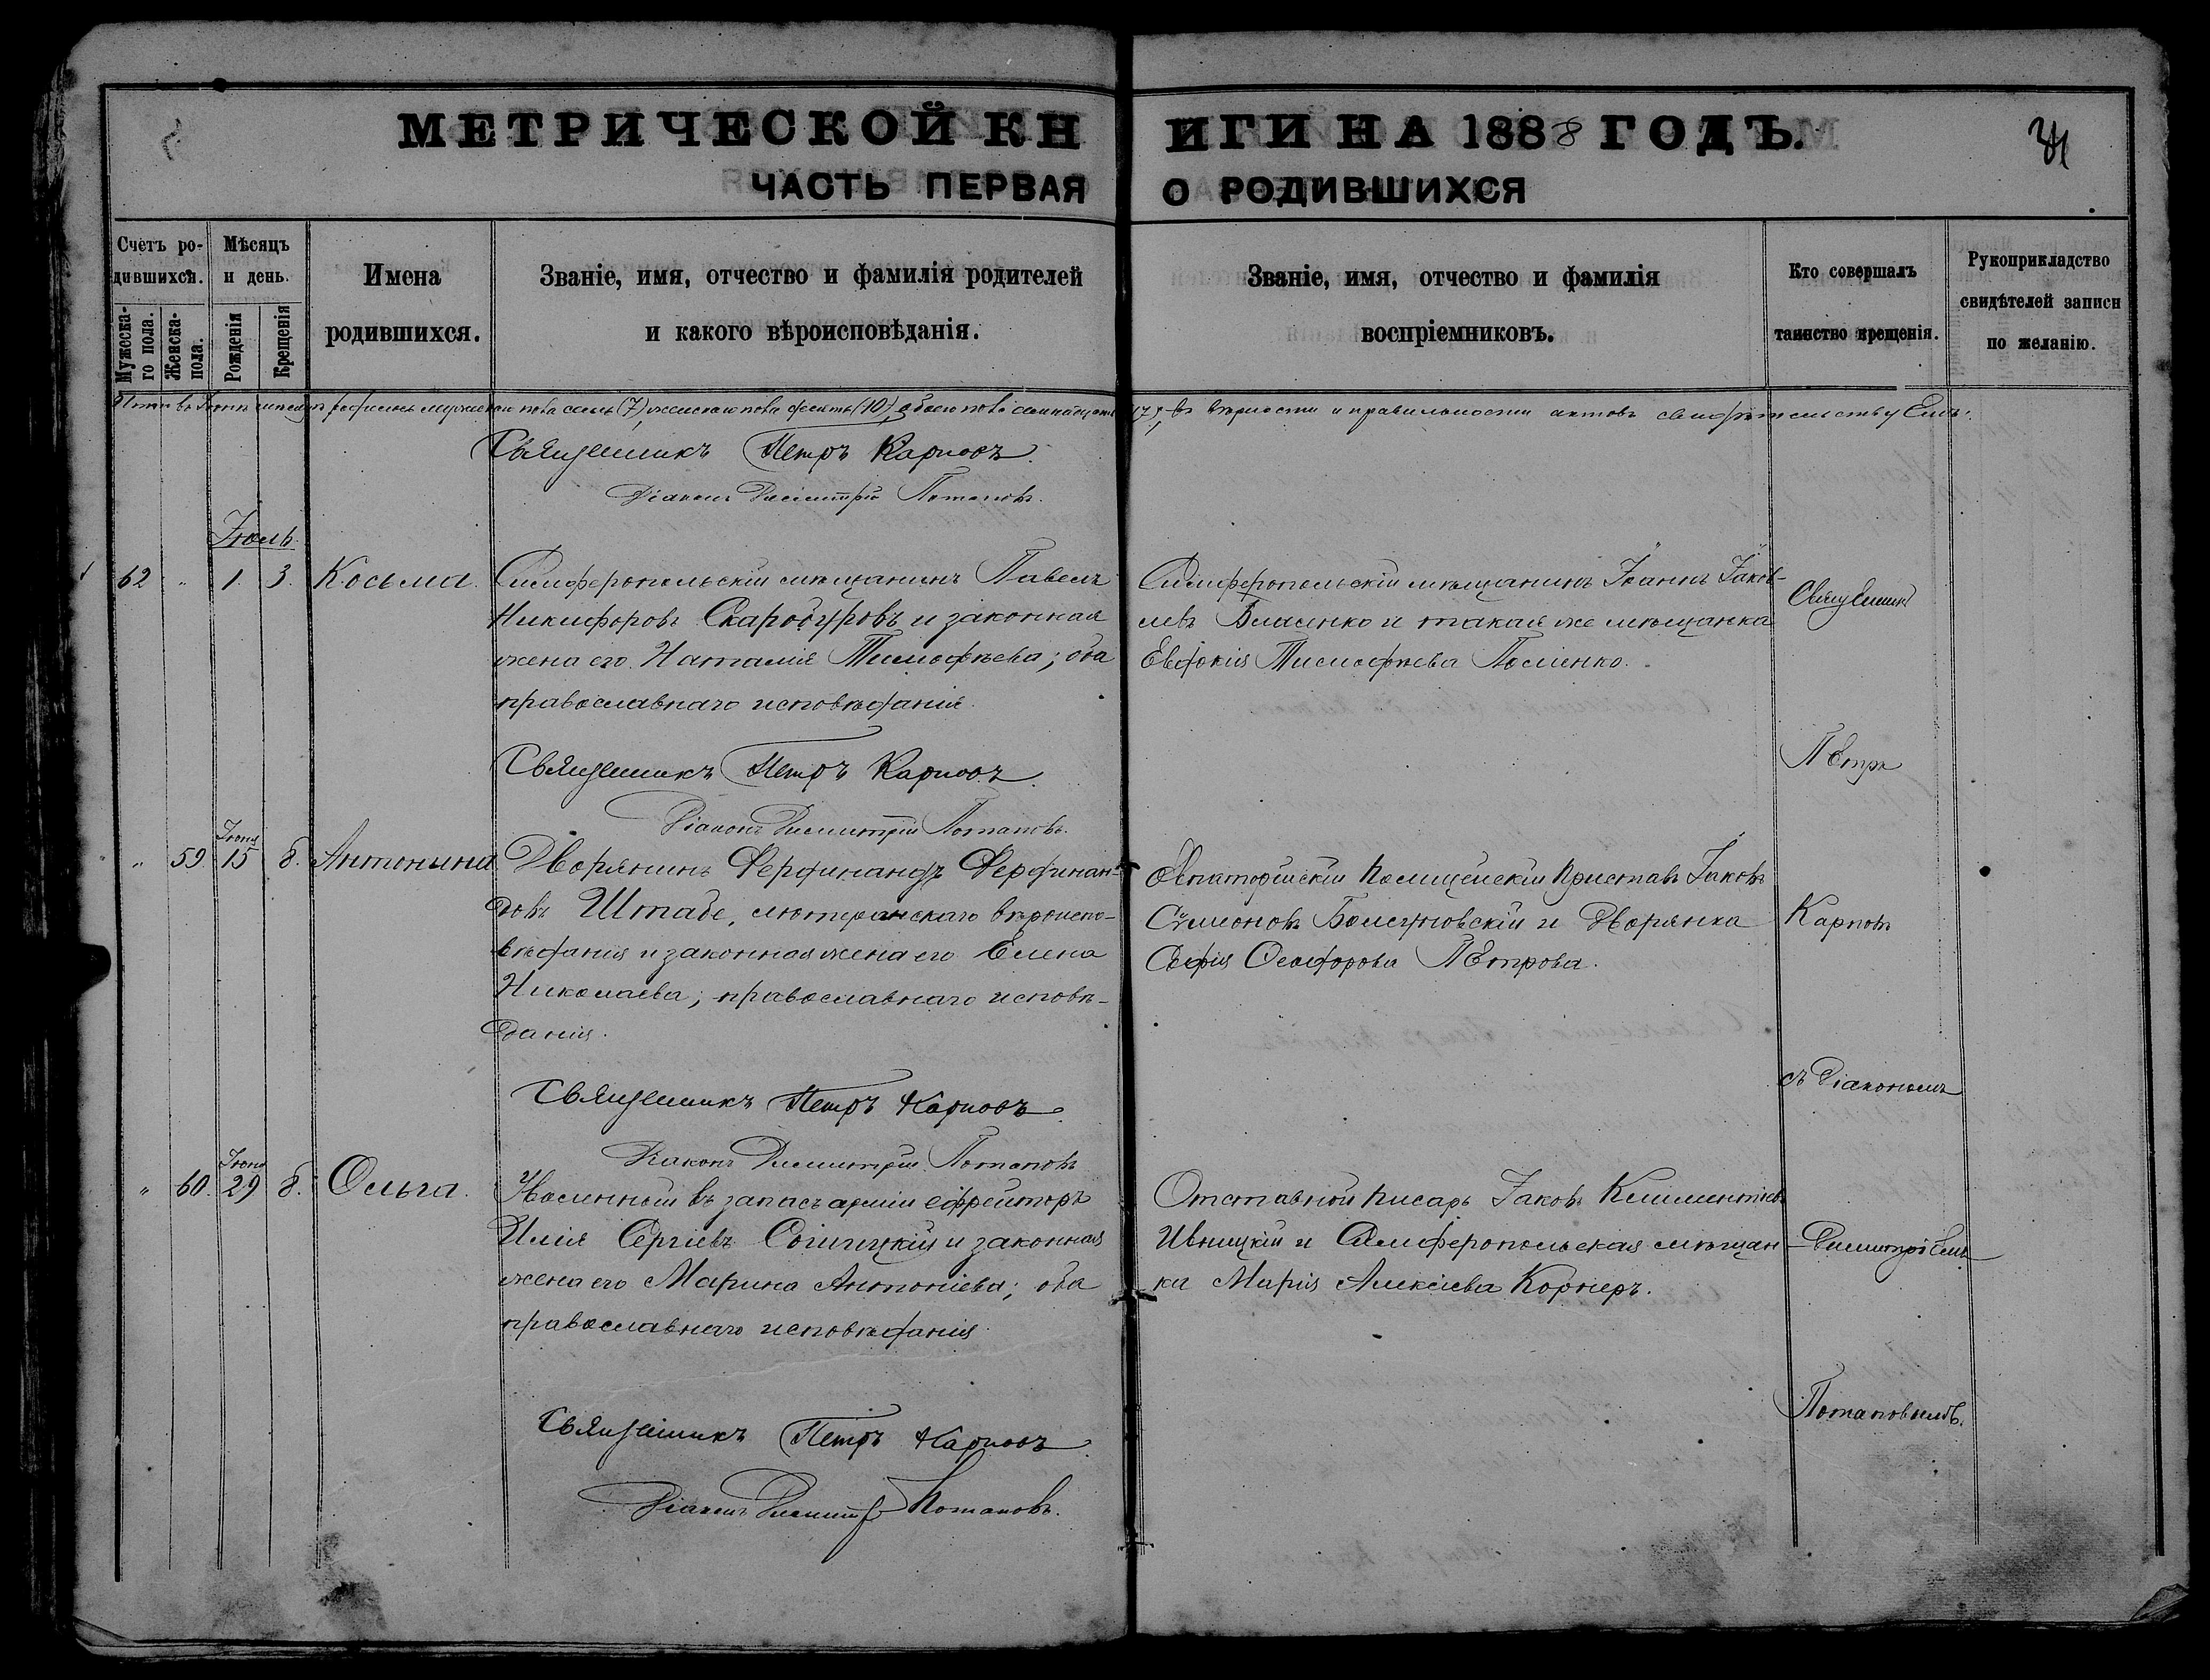 МЕТРИЧЕСКОЙ КНИГИ НА 1888 ГОДЪ.
ЧАСТЬ ПЕРВАЯ О РОДИВШИХСЯ
Счетъ родившихся.
Мужескаго пола.
Женска- пола.
Мѣсяцъ и день.
Рожденія
Крещенія
Имена
родившихся.
Званіе, имя, отчество и фамилія родителей
и какого вѣроисповѣданія.
Званіе, имя, отчество и фамилія
воспріемниковъ.
Кто совершалъ
таинство крещенія.
Рукоприкладство
свидѣтелей записи
по желанію.
мужескаго пола семь (7), женскаго пола десять (10), обоего пола семнадцать (17), въ вѣрности и правильности актовъ свидѣтельствуемъ:
Священникъ Петръ Карповъ.
Діаконъ Димитрій Потаповъ.
Іюль.
62 " 1. 3. Косьма.
Симферопольскій мѣщанинъ Павелъ
Никифоровъ и законная
жена его Наталія Тимофѣева; оба
православнаго исповѣданія.
Симферопольскій мѣщанинъ Іоаннъ Іаков-
левъ и такая же мѣщанка
Евдокія Тимофѣева
Священникъ
Священникъ Петръ Карповъ.
Діаконъ Димитрій Потаповъ.
Петръ
" 59 Іюня 15 8. Антонина.
Дворянинъ Фердинандъ Фердинан-
довъ Штабе, лютеранскаго вѣроиспо-
вѣданія и законная жена его Елена
Николаева; православнаго исповѣ-
данія.
Евпаторійскій Полицейскій Приставъ Іаковъ
Сѵмеоновъ и Дворянка
Софія Ѳеодорова Петрова.
Карповъ
Священникъ Петръ Карповъ.
Діаконъ Димитрій Потаповъ
съ Діакономъ
" 60. Іюня 29 8. Ольга.
Уволенный въ запасъ арміи ефрейторъ
Илія Сергіевъ и законная
жена его Марина Антоніева; оба
православнаго исповѣданія.
Отставной писарь Іаковъ Климентіевъ
Ивницкій и Симферопольская мѣщан-
ка Марія Алексіева Корнеръ.
Димитріемъ
Священникъ Петръ Карповъ.
Діаконъ Димитр Потаповъ.
Потаповымъ.